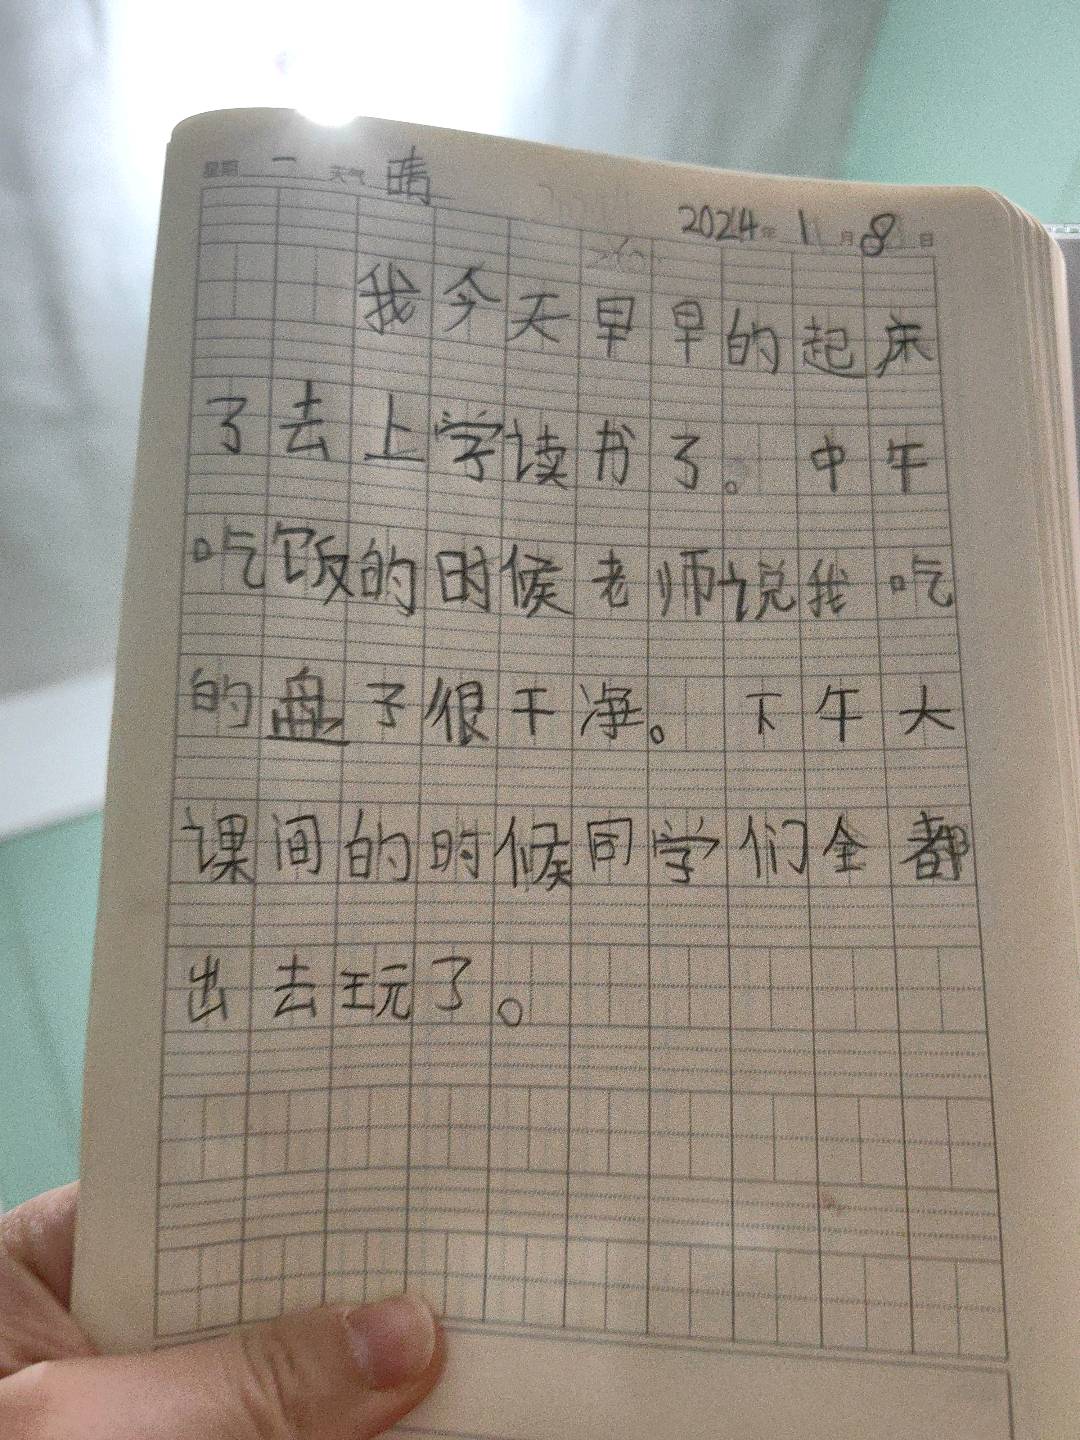 星期 一 天气 晴
2024年 1月8日
我今天早早的起床
了去上学读书了。中午
吃饭的时候老师说我吃
的盘子很干净。下午大
课间的时候同学们全都
出去玩了。